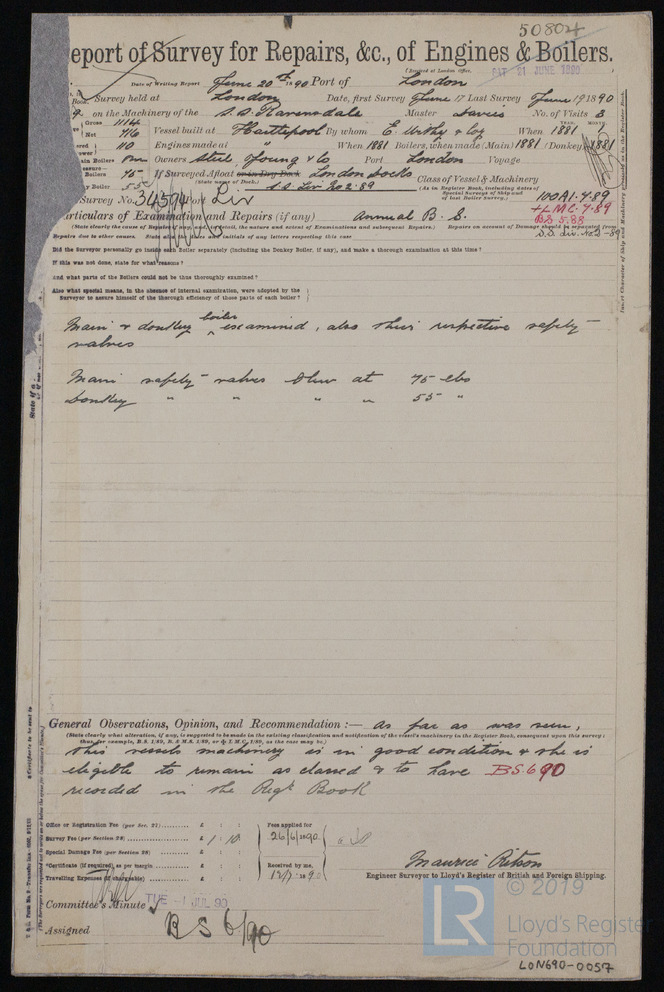 50804
eport of Survey for Repairs, &c., of Engines & Boilers.
(Received at London Office,
SAT 21 JUNE 1890 )
Date of Writing Report June 20th 1890 Port of London
Survey held at London Date, first Survey June 17 Last Survey June 19 1890
on the Machinery of the S.S. Ravensdale Master Davies No. of Visits 3
Gross 1114
Net 716 Vessel built at Hartlepool By whom E. Withy & Coy When 1881 7
110 Engines made at " When 1881 Boilers, when made (Main) 1881 (Donkey) 1881
Boilers One Owners Steel, Young & Co Port London Voyage
Boilers 75 If Surveyed Afloat or in Dry Dock London Docks Class of Vessel & Machinery
(State name of Dock.) (As in Register Book, including dates of Special Surveys of Ship and of last Boiler Survey.)
y Boiler 55 S.S. Liv No 2. 89 100A1. 7.89
Survey No. 34594 Port Liv + L.M.C. 7.89
articulars of Examination and Repairs (if any) Annual B. S. BS 5.88
(State clearly the cause of Repairs if any, and, in detail, the nature and extent of Examinations and subsequent Repairs.) Repairs on account of Damage should be separated from
Repairs due to other causes. State also the dates and initials of any letters respecting this case S.S. Liv. No 2-89
Did the Surveyor personally go inside each Boiler separately (including the Donkey Boiler, if any), and make a thorough examination at this time?
If this was not done, state for what reasons?
And what parts of the Boilers could not be thus thoroughly examined?
Also what special means, in the absence of internal examination, were adopted by the
Surveyor to assure himself of the thorough efficiency of those parts of each boiler?
Main & donkey boiler examined, also their respective safety
valves
Main safety valves blow at 75 lbs
Donkey " " " " 55 "
General Observations, Opinion, and Recommendation :— As far as was seen,
(State clearly what alteration, if any, is suggested to be made in the existing classification and notification of the vessel's machinery in the Register Book, consequent upon this survey;
thus, for example, B.S. 1/89, B. & M.S. 1/89, or L.M.C. 1/89, as the case may be.)
this vessels machinery is in good condition & she is
eligible to remain as classed & to have BS. 6 90
recorded in the Regr Book
Office or Registration Fee (per Sec. 27) £ : : Fees applied for
Survey Fee (per Section 28) £ 1 : 10 : 26/6/1890
Special Damage Fee (per Section 28) £ : :
*Certificate (if required) as per margin £ : : Received by me,
Travelling Expenses (if chargeable) £ : : 12/7/1890
Maurice Ritson
Engineer Surveyor to Lloyd's Register of British and Foreign Shipping.
Committee's Minute TUE -1 JUL 90
Assigned BS 6/90
© 2019
LR
Lloyd's Register
Foundation
LON690-0057